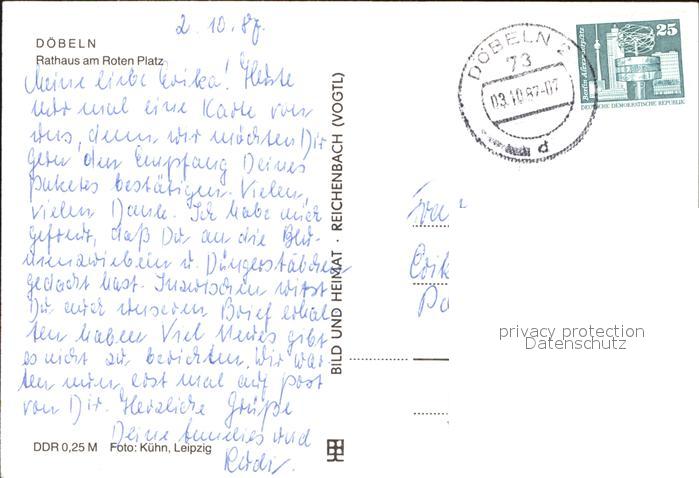 2. 10. 87.
DÖBELN
Rathaus am Roten Platz
Meine liebe Erika! Heute
nur mal eine Karte von
uns, denn wir möchten Dir
gern den Empfang Deines
Paketes bestätigen. Vielen,
vielen Dank. Ich habe mich
gefreut, daß Du an die Blu-
menzwiebeln u. Düngerstäbchen
gedacht hast. Inzwischen wirst
Du auch unseren Brief erhal
ten haben Viel Neues gibt
es nicht zu berichten. Wir war
ten nun erst mal auf Post
von Dir. Herzliche Grüße
Deine und
Rudi.
DDR 0,25 M Foto: Kühn, Leipzig
BILD UND HEIMAT · REICHENBACH (VOGTL)
DÖBELN 2
73
03.10.87-07
25
Berlin Alexanderplatz
DEUTSCHE DEMOKRATISCHE REPUBLIK
Frau
Erik
privacy protection
Datenschutz